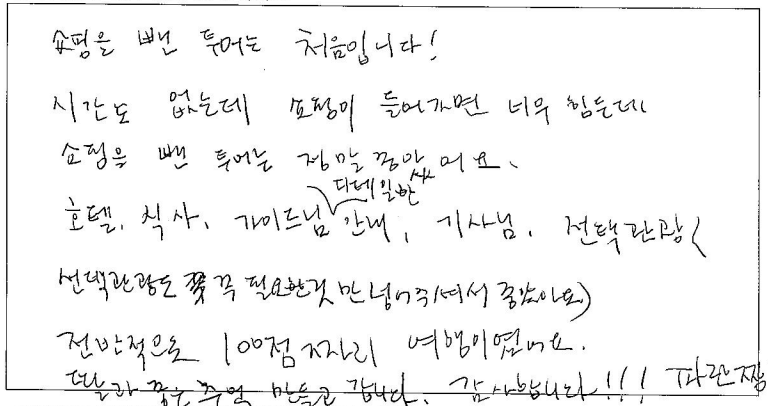 쇼핑을 뺀 투어는 처음입니다!
시간도 없는데 쇼핑이 들어가면 너무 힘든데
쇼핑을 뺀 투어는 정말 좋았어요.
호텔, 식사, 가이드님 디테일한 안내, 기사님, 선택관광(
선택관광도 꼭 필요한것만 넣어주셔서 좋았어요)
전반적으로 100점짜리 여행이였어요.
좋은 추억 만들고 갑니다. 감사합니다!!! 파란짱